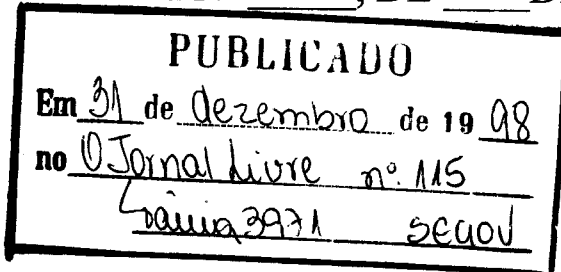 PUBLICADO
Em 31 de dezembro de 19 98
no O Jornal Livre nº. 115
3971 SEGOV